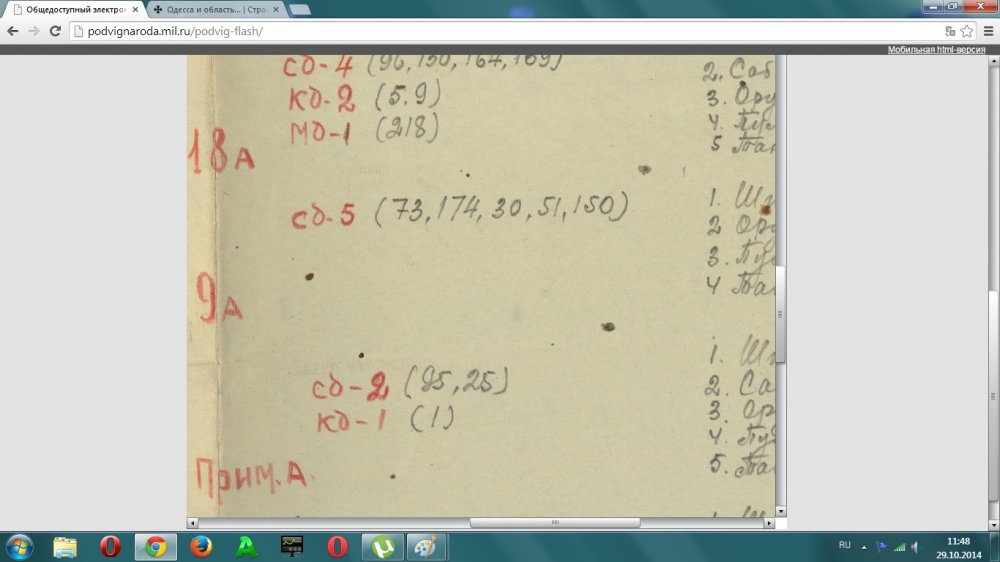 Общедоступный электро
Одесса и область... | Стра
podvignaroda.mil.ru/podvig-flash/
Мобильная html-версия
сд-4 (96, 150, 164, 169)
кд-2 (5.9)
мд-1 (218)
18А
2. Саб
3. Ору
4. Пул
5 Тан
сд-5 (73, 174, 30, 51, 150)
1. Шт
2 Ору
3. Пул
4 Тан
9А
сд-2 (95, 25)
кд-1 (1)
1. Шт
2. Са
3. Ор
4. Пу
5. Тан
Прим. А.
RU
11:48
29.10.2014